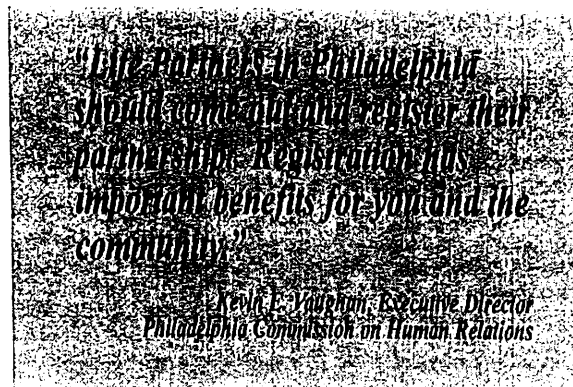 "Life Partners in Philadelphia
should come out and register their
partnership. Registration has
important benefits for you and the
community."
Kevin E. Vaughan, Executive Director
Philadelphia Commission on Human Relations